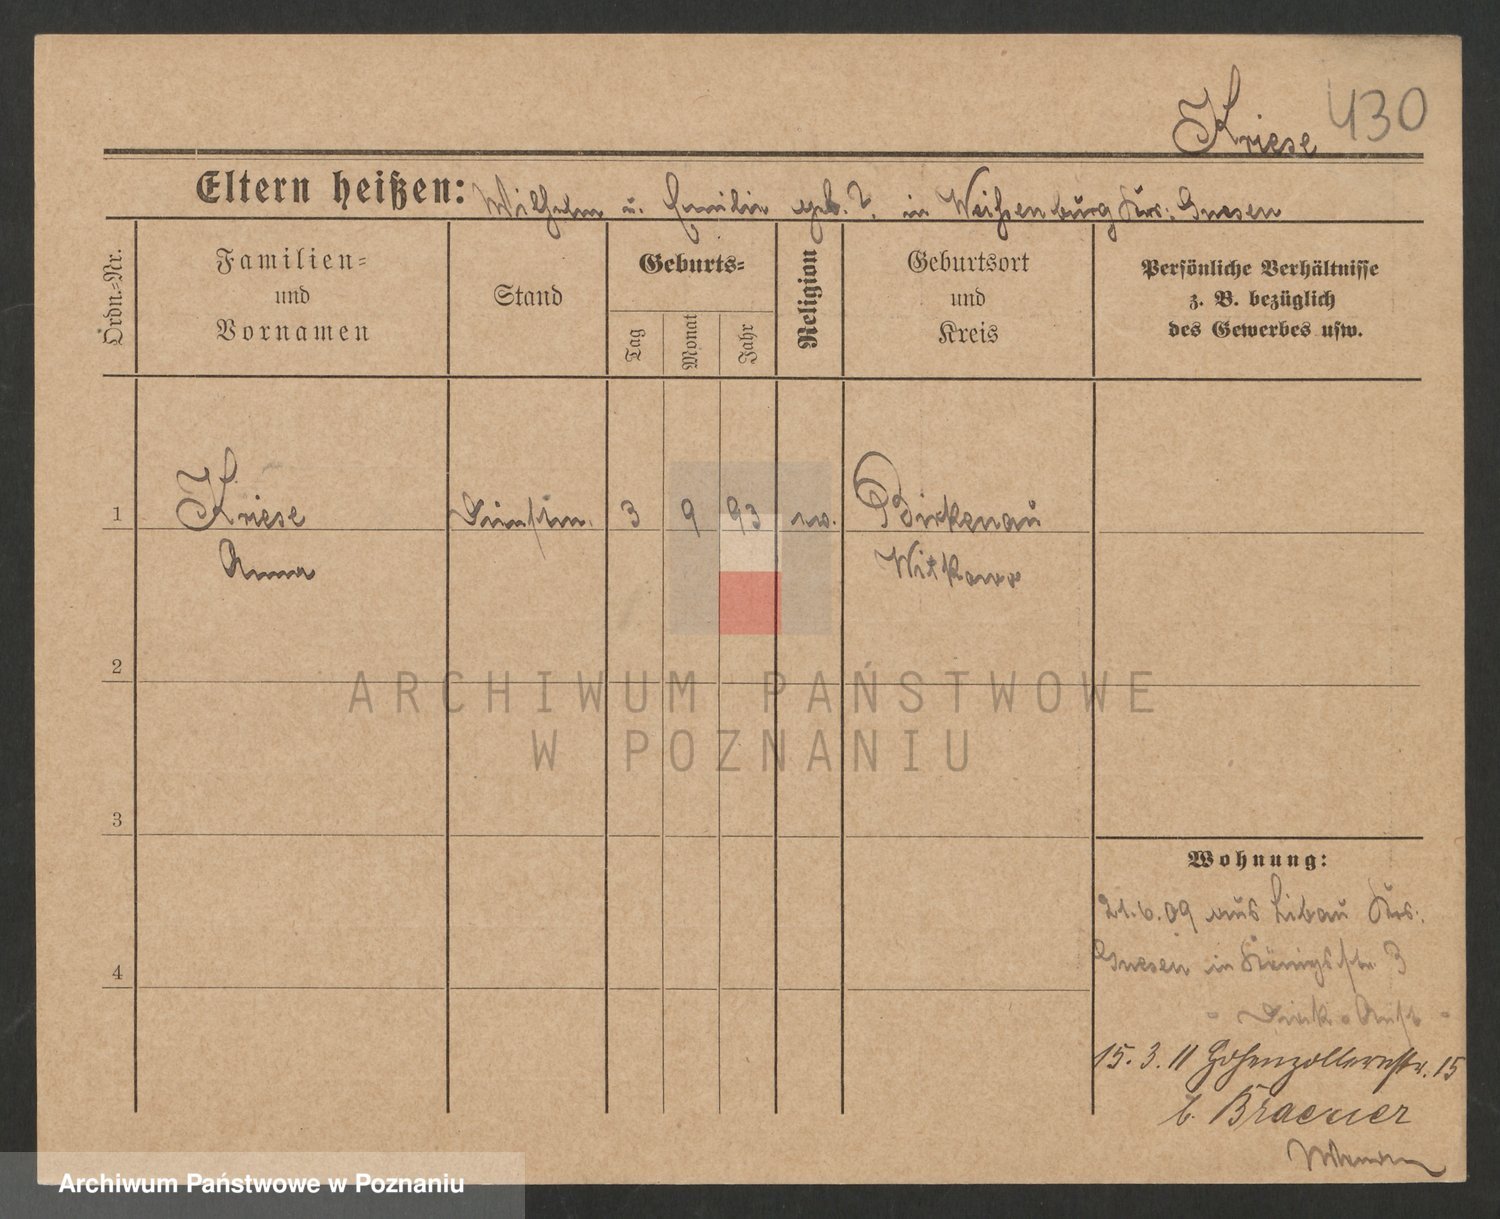 Kriese 430
Eltern heißen: Wilhelm u. Emilie geb. ?. in Weißenburg Krs. Gnesen
Ordn.-Nr.
Familien-
und
Vornamen
Stand
Geburts-
Tag
Monat
Jahr
Religion
Geburtsort
und
Kreis
Persönliche Verhältnisse
z. B. bezüglich
des Gewerbes usw.
1 Kriese Dienstm. 3 9 93 ev. Birkenau
Anna Witkowo
2
ARCHIWUM PAŃSTWOWE
W POZNANIU
3
Wohnung:
21.6.09 aus Libau Krs.
Gnesen in Königsstr 3
4
15. 3. 11 Hohenzollernstr. 15
b. Braeuer
Archiwum Państwowe w Poznaniu